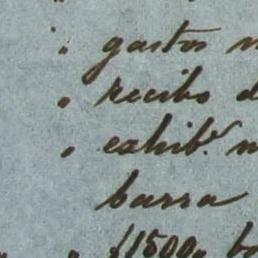 " gastos
" recibo d
" exhib.r
barra
" £1500,, b